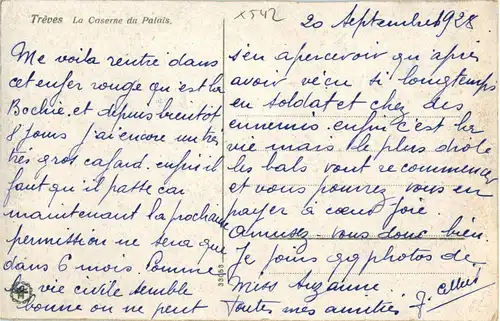 Trèves La Caserne du Palais.
X542
20 Septembre 1928
Me voila rentré dans
cet enfer rouge qu est la
Bochie. et depuis bientôt
8 jours j'ai encore un très
très gros cafard. enfin il
faut qu'il passe car
maintenant la prochaine
permission ne sera que
dans 6 mois. Comme
la vie civile semble
bonne on ne peut
s'en apercevoir qu'apres
avoir vécu si longtemps
en soldat et chez des
ennemis. enfin c'est la
vie mais. le plus drole
les bals vont recommencer
et vous pourrez vous en
payer à cœur joie.
Amusez-vous donc bien.
Je joins qq photos de
Miss Suzanne.
Toutes mes amitiés
33053